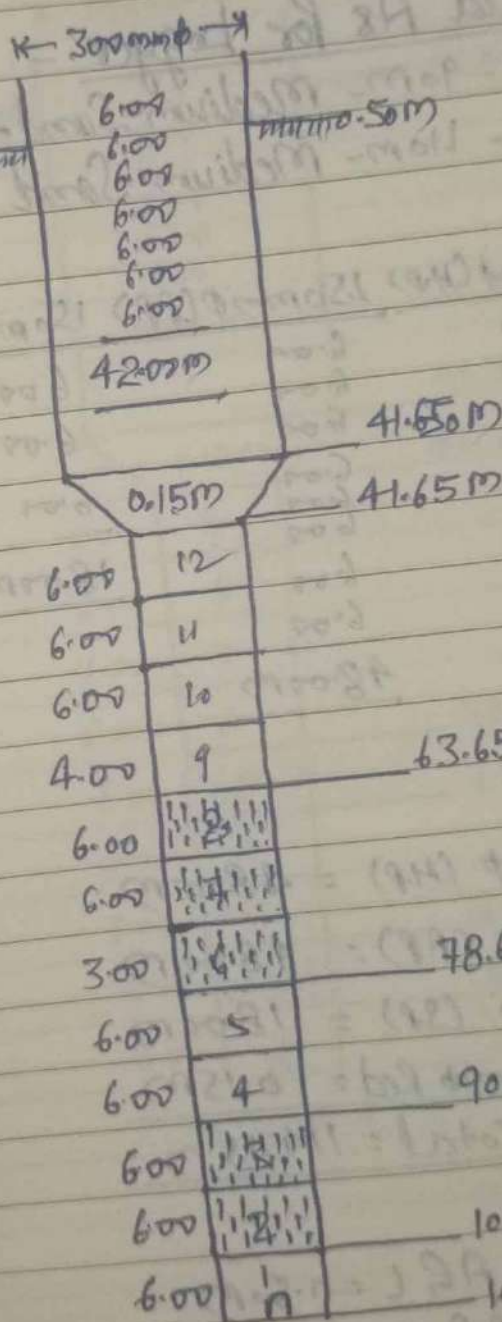 300mmϕ
6.00
6.00 0.50M
6.00
6.00
6.00
6.00
6.00
42.00M
41.650M
0.15M 41.65M
6.00 12
6.00 11
6.00 10
4.00 9 63.65
6.00 8
6.00 7
3.00 6 78.6
6.00 5
6.00 4 90
6.00 3
6.00 2 10
6.00 1